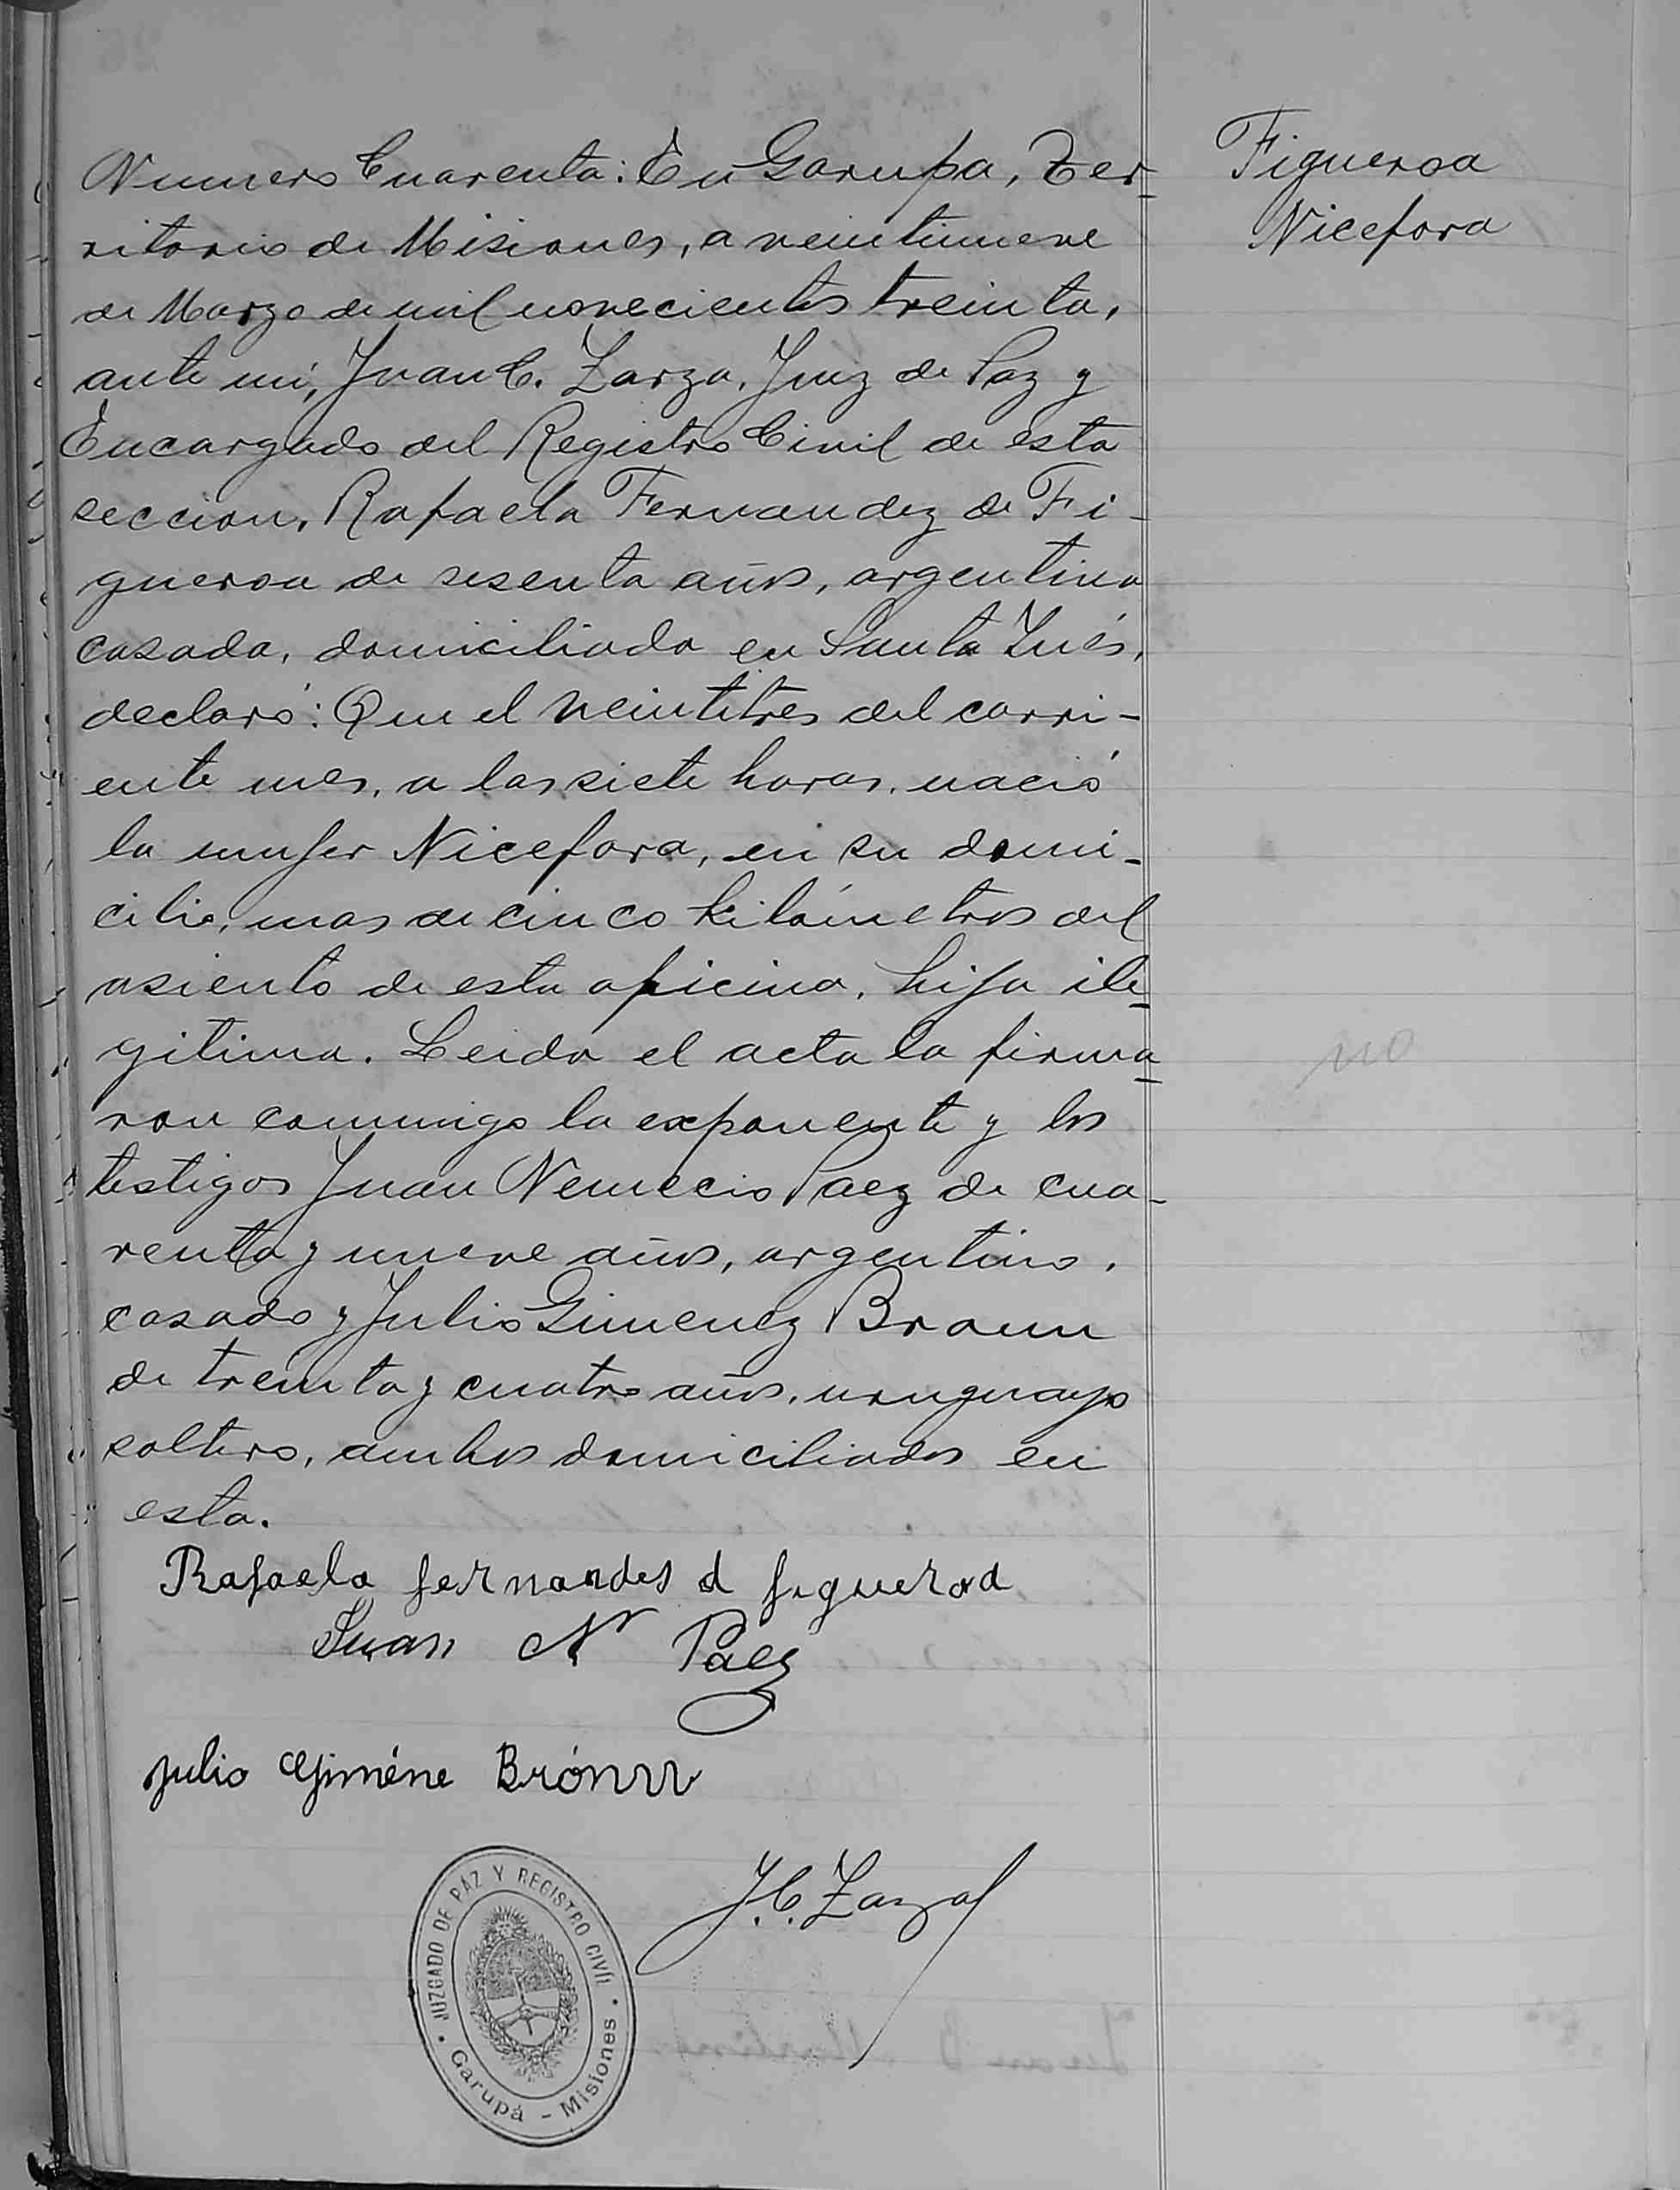 Numero Cuarenta: En Garupa, Ter-
ritorio de Misiones, a veintinueve
de Marzo de mil novecientos treinta,
ante mi, Juan C. Zarza, Juez de Paz y
Encargado del Registro Civil de esta
seccion, Rafaela Fernandez de Fi-
gueroa de sesenta años, argentina
casada, domiciliada en Santa Inés,
declaró: Que el veintitres del corri-
ente mes, a las siete horas, nació
la mujer Nicefora, en su domi-
cilio, mas de cinco kilómetros del
asiento de esta oficina, hija ile-
gitima. Leida el acta la firma-
ron conmigo la exponente y los
testigos Juan Nemecio Paez de cua-
renta y nueve años, argentino,
casado y Julio Gimenez Braun
de treinta y cuatro años, uruguayo
soltero, ambos domiciliados en
esta.
Rafaela fernandes d figueroa
Juan N Paez
Julio Giméne Brónn
J. C. Zarza
JUZGADO DE PAZ Y REGISTRO CIVIL
Garupá - Misiones
Figueroa
Nicefora
no